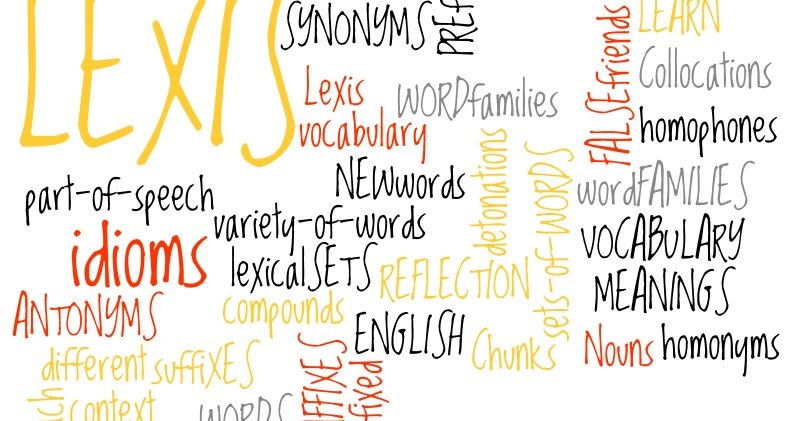 LEXIS
SYNONYMS
PREF
LEARN
FALSEfriends
Collocations
Lexis
WORDfamilies
vocabulary
homophones
NEWwords
detonations
sets-of-WORDS
wordFAMILIES
part-of-speech
variety-of-words
VOCABULARY
idioms
lexicalSETS
REFLECTION
MEANINGS
ANTONYMS
compounds
ENGLISH
Chunks
Nouns
homonyms
different
suffiXES
FFIXES
fixed
context
WORDS